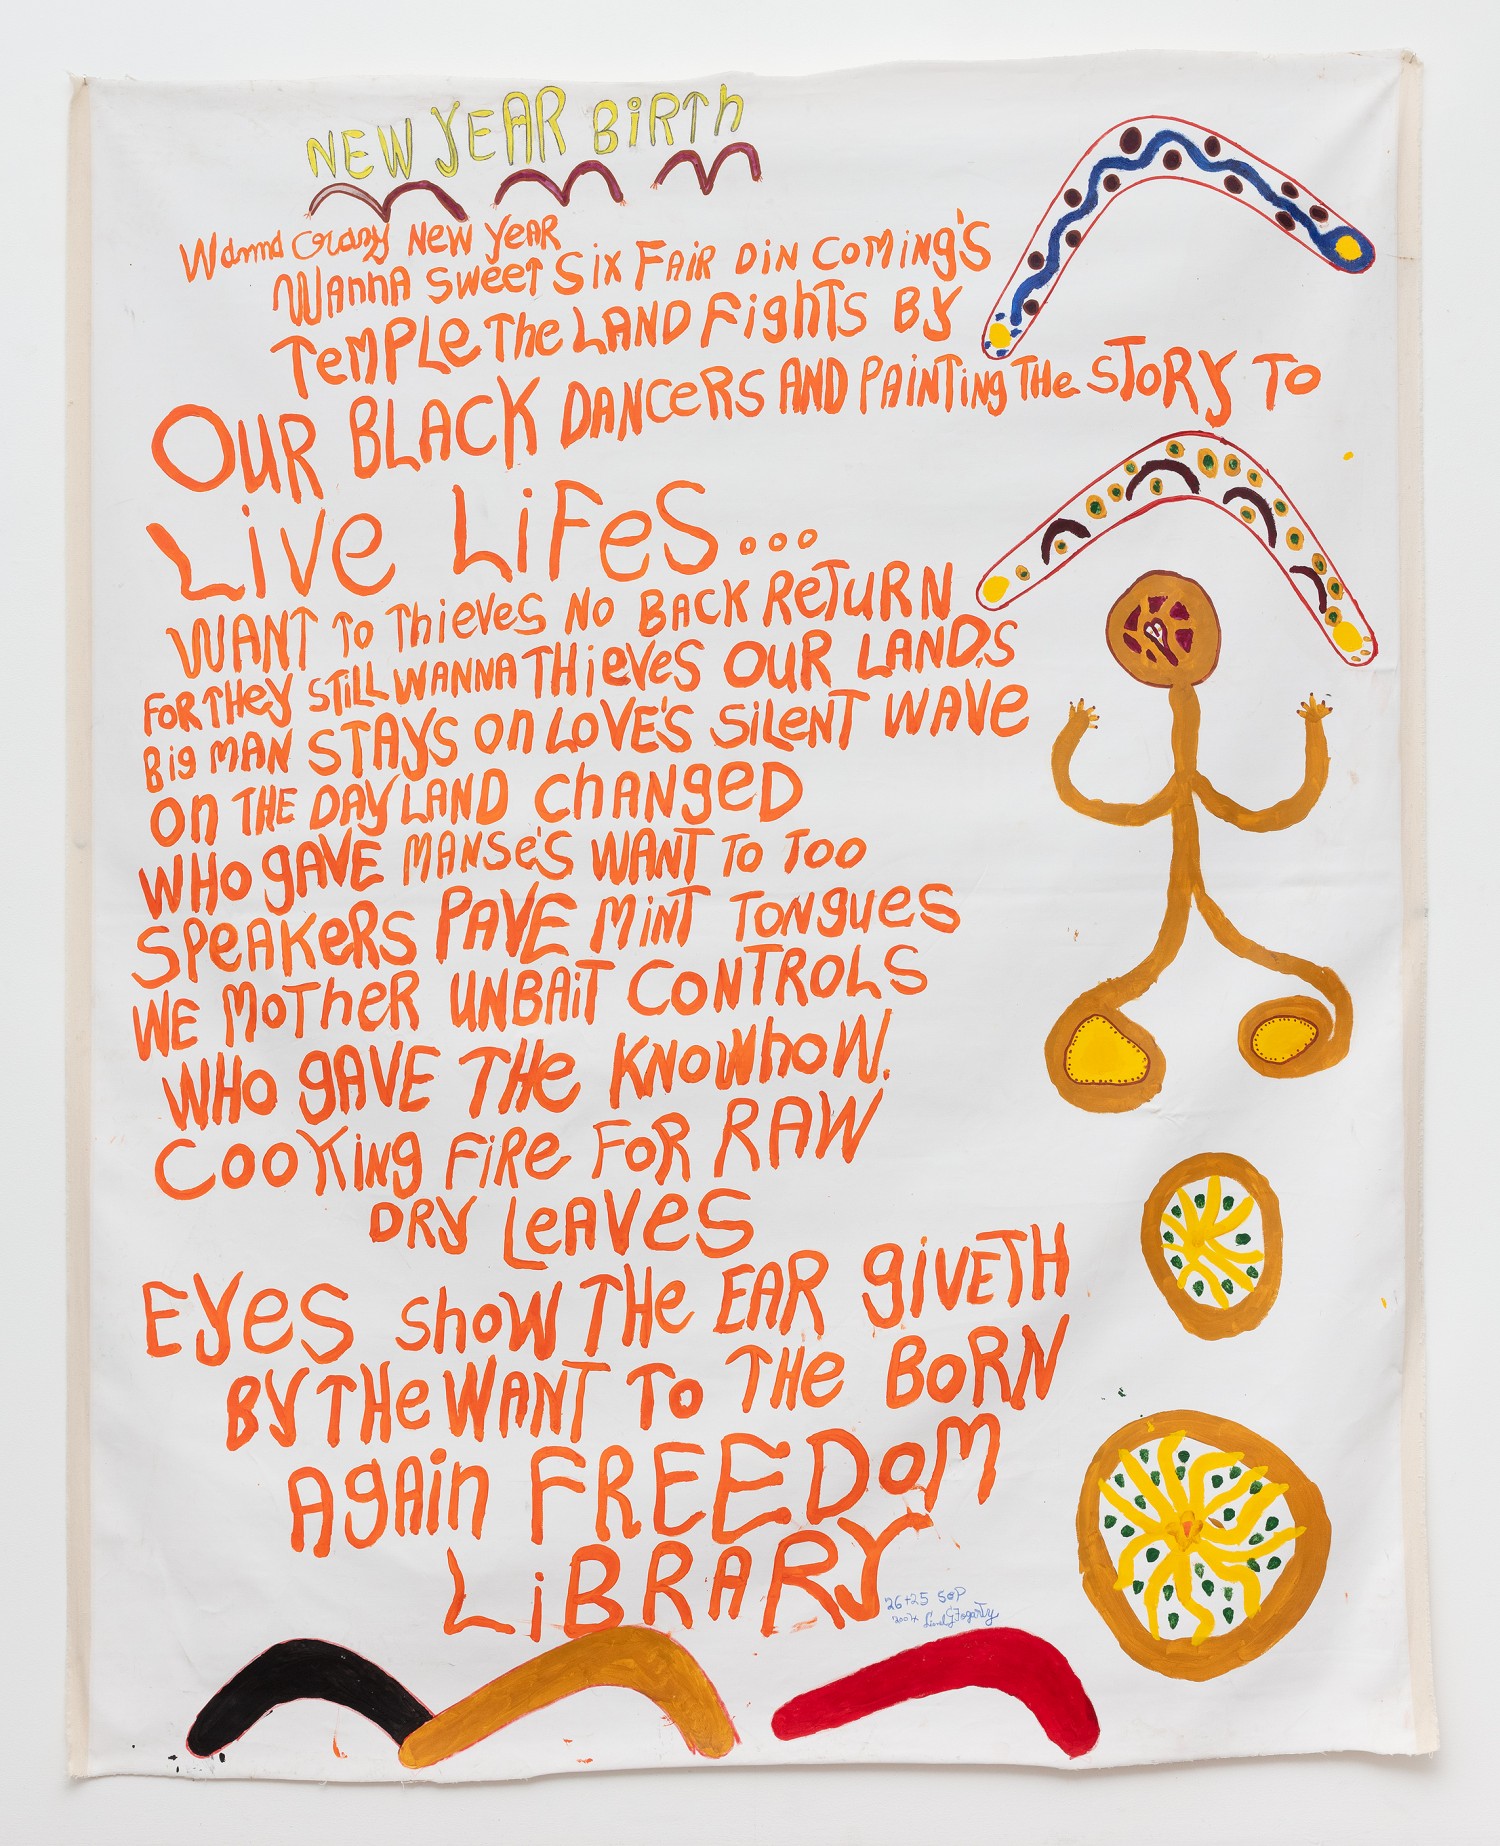 NEW YEAR BiRTh
Wanna Crazy NEW YEAR
WAnnA SWeeT Six FAiR DiN COMing'S
TeMPLe The LAND FighTS BY
OUR BLACK DANCeRS AND PAiNTiNg THe STORY TO
LivE LiFeS...
WANT To ThieVES No BACK ReTURN
FOR THey STiLL WANNA THieVeS OUR LANDS
Big MAN STAYS On LOVE'S SiLENT WAVe
On THE DAY LAND ChANgeD
WHO gAVE MANSe'S WANT To Too
SPeAKeRS PAVE MiNT TONgUeS
WE MoTheR UNBAiT CONTROLS
WHO gAVE THe KNOWhoW.
COOKiNg FiRe FoR RAW
DRY LeAVeS
EYeS ShoW THe EAR giVETH
BY THe WANT To THe BoRN
AgAin FREEDoM
LiBRARY
26+25 SeP
Lionel G Fogarty